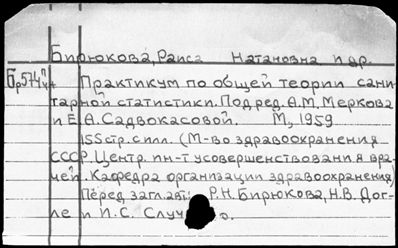 Бирюкова, Раиса Натановна и др.
Бр574 п/ч + Практикум по общей теории сани-
тарной статистики. Под ред. А.М. Меркова
и Е.А. Садвокасовой. М, 1959
155 стр. с илл. (М-во здравоохранения
СССР. Центр. ин-т усовершенствования вра-
чей. Кафедра организации здравоохранения)
Перед заглав.: Р.Н. Бирюкова, Н.В. Дог-
ле и И.С. Случ